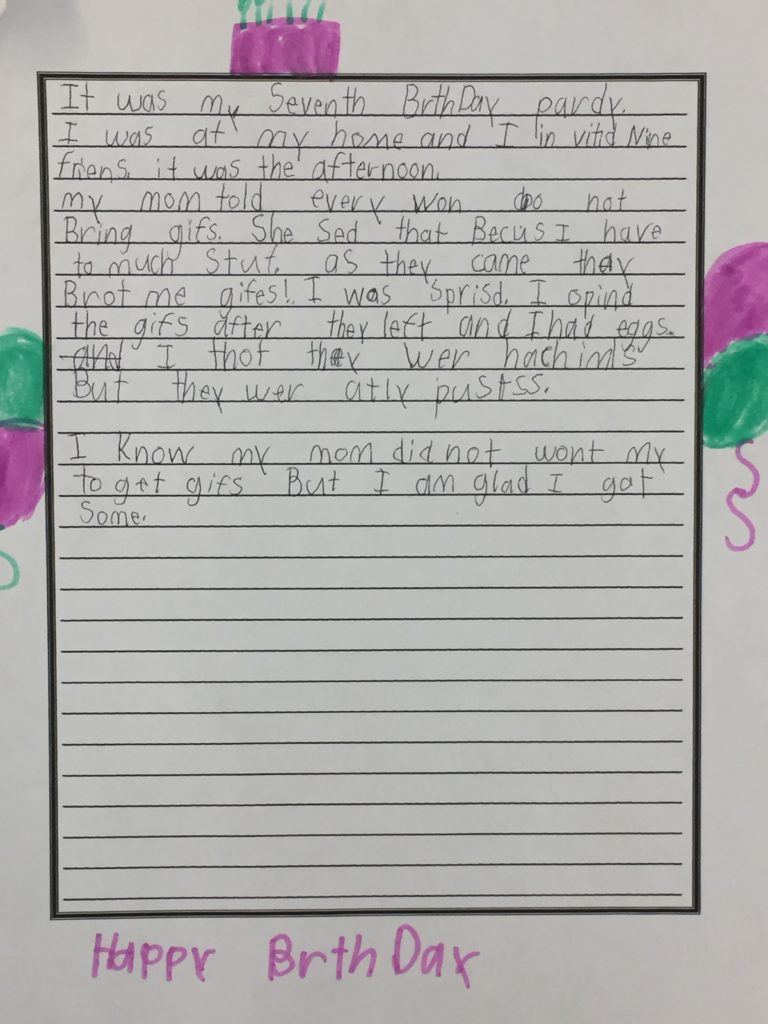 It was my Seventh BrthDay pardy.
I was at my home and I in vitid Nine
friens. it was the afternoon.
my mom told every won do not
Bring gifs. She Sed that Becus I have
to much Stuf. as they came they
Brot me gifes! I was Sprisd. I opind
the gifs after they left and I had eggs.
and I thot they wer hachimls
But they wer atly pustss.
I Know my mom did not wont my
to get gifs But I am glad I got
Some.
Happy BrthDay